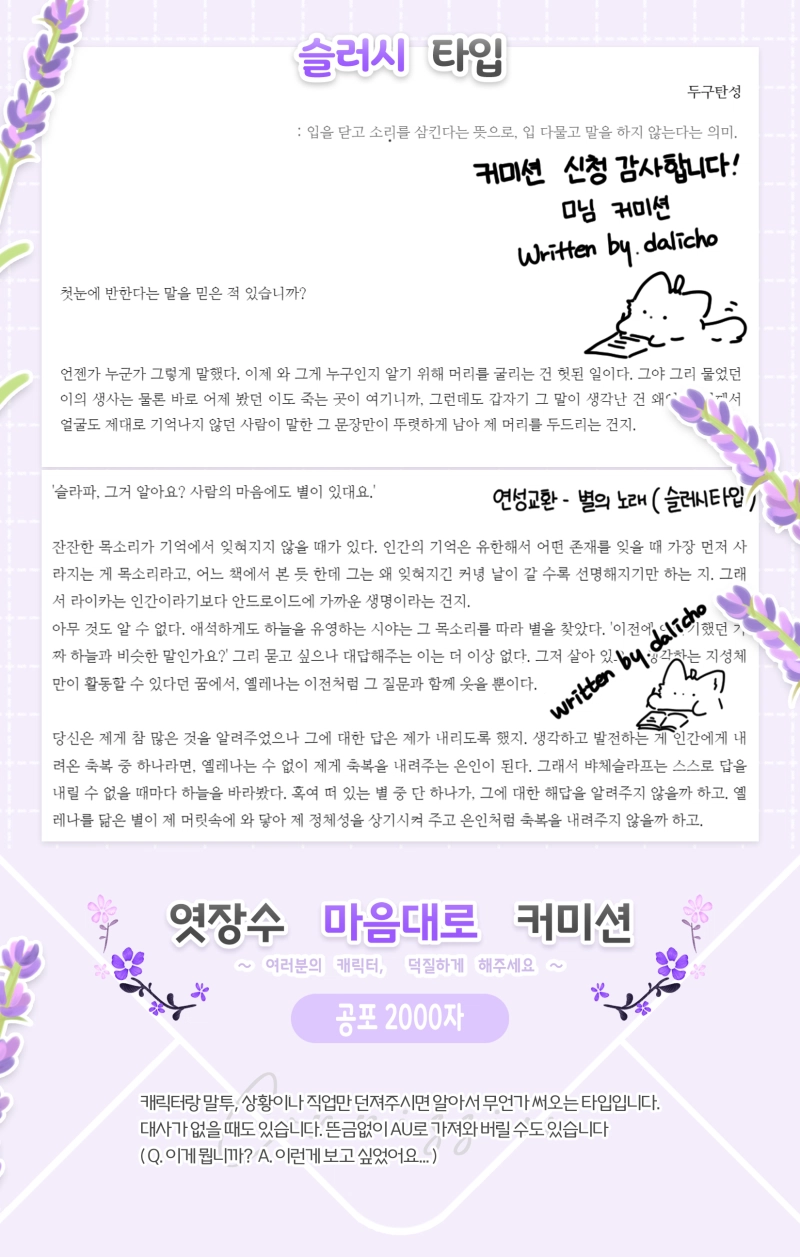 슬러시 타입
두구탄성
: 입을 닫고 소리를 삼킨다는 뜻으로, 입 다물고 말을 하지 않는다는 의미.
커미션 신청 감사합니다!
ㅁ님 커미션
Written by. dalicho
첫눈에 반한다는 말을 믿은 적 있습니까?
언젠가 누군가 그렇게 말했다. 이제 와 그게 누구인지 알기 위해 머리를 굴리는 건 헛된 일이다. 그야 그리 물었던
이의 생사는 물론 바로 어제 봤던 이도 죽는 곳이 여기니까, 그런데도 갑자기 그 말이 생각난 건
얼굴도 제대로 기억나지 않던 사람이 말한 그 문장만이 뚜렷하게 남아 제 머리를 두드리는 건지.
'슬라파, 그거 알아요? 사람의 마음에도 별이 있대요.'
연성교환 - 별의 노래 ( 슬러시타입 )
잔잔한 목소리가 기억에서 잊혀지지 않을 때가 있다. 인간의 기억은 유한해서 어떤 존재를 잊을 때 가장 먼저 사
라지는 게 목소리라고, 어느 책에서 본 듯 한데 그는 왜 잊혀지긴 커녕 날이 갈 수록 선명해지기만 하는 지. 그래
서 라이카는 인간이라기보다 안드로이드에 가까운 생명이라는 건지.
아무 것도 알 수 없다. 애석하게도 하늘을 유영하는 시야는 그 목소리를 따라 별을 찾았다. '이전에
짜 하늘과 비슷한 말인가요?' 그리 묻고 싶으나 대답해주는 이는 더 이상 없다. 그저 살아 생각하는 지성체
만이 활동할 수 있다던 꿈에서, 옐레나는 이전처럼 그 질문과 함께 웃을 뿐이다.
written by. dalicho
당신은 제게 참 많은 것을 알려주었으나 그에 대한 답은 제가 내리도록 했지. 생각하고 발전하는 게 인간에게 내
려온 축복 중 하나라면, 옐레나는 수 없이 제게 축복을 내려주는 은인이 된다. 그래서 뱌체슬라프는 스스로 답을
내릴 수 없을 때마다 하늘을 바라봤다. 혹여 떠 있는 별 중 단 하나가, 그에 대한 해답을 알려주지 않을까 하고. 옐
레나를 닮은 별이 제 머릿속에 와 닿아 제 정체성을 상기시켜 주고 은인처럼 축복을 내려주지 않을까 하고.
엿장수 마음대로 커미션
~ 여러분의 캐릭터, 덕질하게 해주세요 ~
공포 2000자
캐릭터랑 말투, 상황이나 직업만 던져주시면 알아서 무언가 써오는 타입입니다.
대사가 없을 때도 있습니다. 뜬금없이 AU로 가져와 버릴 수도 있습니다
( Q. 이게 뭡니까? A. 이런게 보고 싶었어요... )